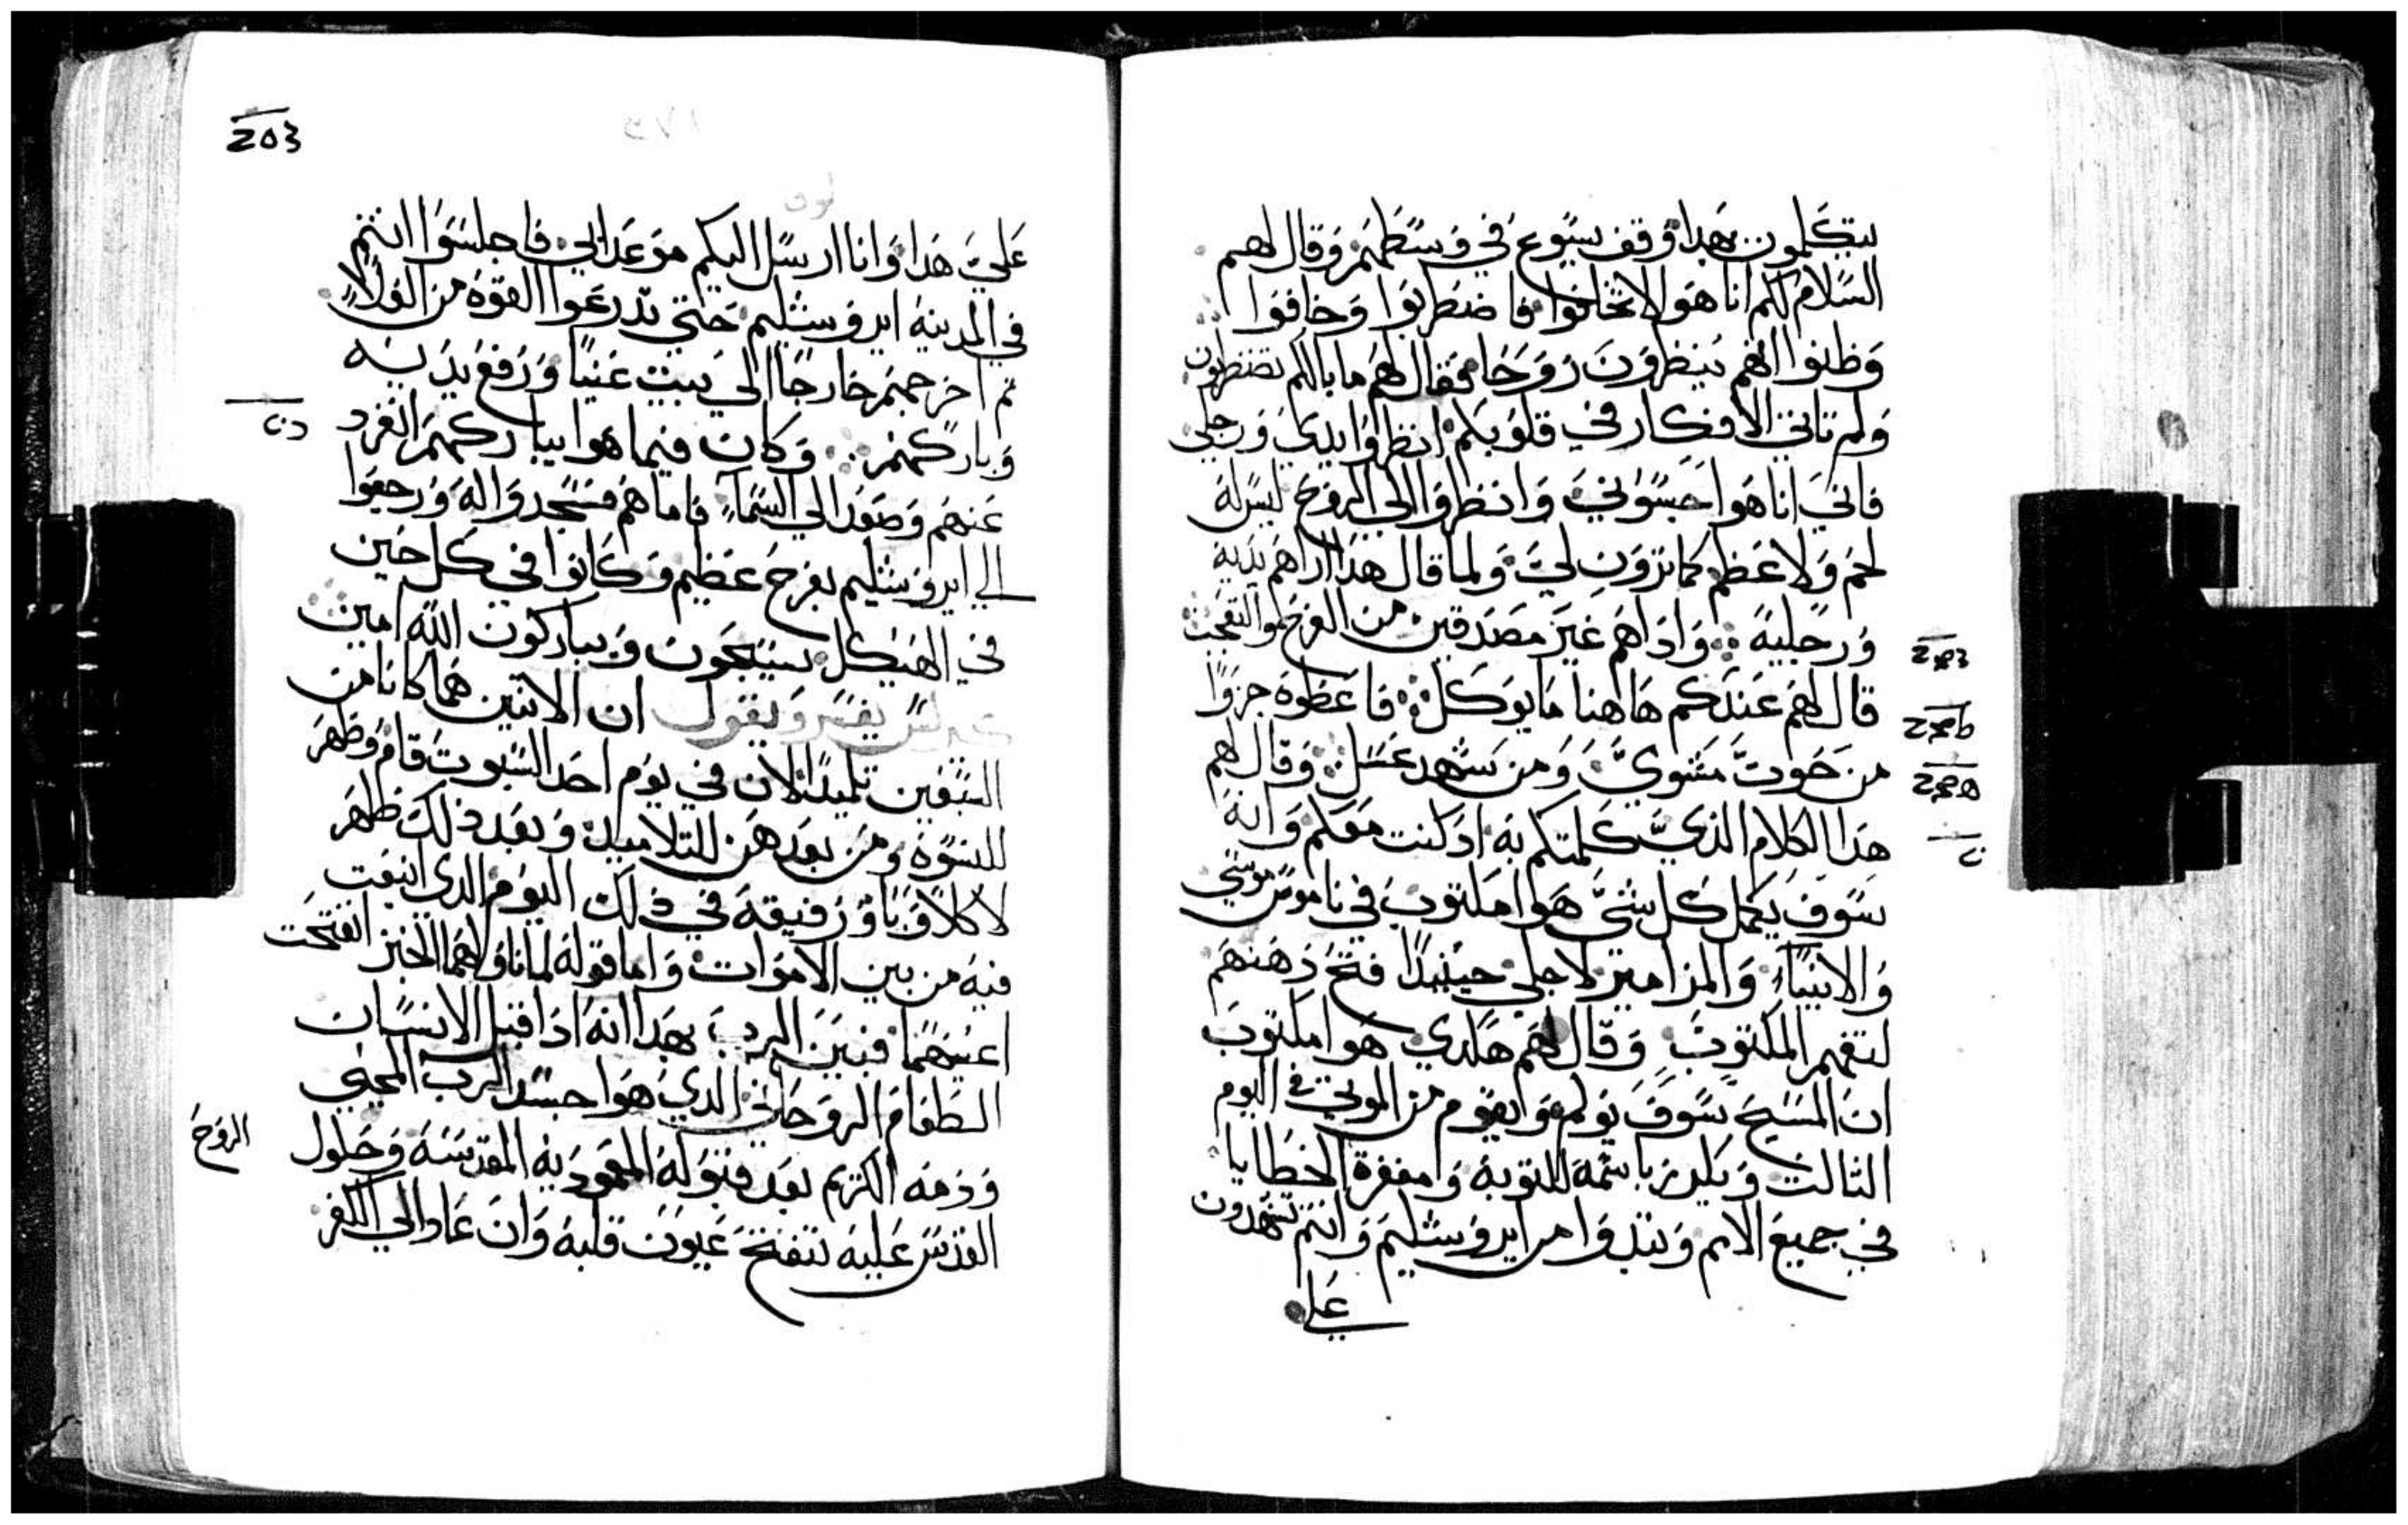 يتكلمون بهدا وقف يسوع في وسطهم وقال لهم
السلام لكم انا هو لا تخافوا فاضطربوا وخافوا
وظنوا انهم ينظرون روحا فقال لهم ما بالكم تضطربون
ولم تاتي الافكار في قلوبكم انظروا يدي ورجلي
فاني انا هوا جسوني وانظروا الي الروح ليس له
لحم ولا عظم كما ترون لي ولما قال هدا اراهم يديه
ورجليه واداهم غير مصدقين من الفرح والتعجب
قال لهم عندكم هاهنا ما يوكل فاعطوه جزوا
من حوت مشوي ومن شهد عسل وقال لهم
هدا الكلام الدي كلمتكم به اد كنت معكم وانه
سوف يكمل كل شي هوا مكتوب في ناموس موسي
والانبياء والمزامير لاجلي حينيدا فتح دهنهم
لتفهم المكتوب وقال لهم هكدي هوا مكتوب
ان المسيح سوف يولم ويقوم من الموتي في اليوم
التالت ويكرز باسمه للتوبه وامغفرة الخطايا
في جميع الامم وتبدوا من ايروشليم وانتم تشهدون
علي
203
علي هدا وانا ارسل اليكم موعد ابي فاجلسوا انتم
في المدينه ايروشليم حتي تدرعوا القوه من العلاء
تم اخرجهم خارجا الي بيت عنيا ورفع يديه
وباركهم وكان فيما هوا يباركهم انفرد
عنهم وصعد الي السماء فاما هم فسجدوا له ورجعوا
الي ايروشليم بفرح عظيم وكانوا في كل حين
في الهيكل يسبحون ويباركون الله امين
كيرلس يفسر ويقول ان الاتنين هما كانا من
السبعين تلميدا لان في يوم احد السبوت قام وظهر
للنسوه ومن بعدهن للتلاميد وبعد دلك ظهر
لاكلاوبا ورفيقه في دلك اليوم الدي انبعت
فيه من بين الاموات واما قوله لما ناولهما الخبز انفتحت
اعينهما فبين الرب بهدا انه ادا قبل الانسان
الطعام الروحاني الدي هوا جسد الرب المحيي
ودمه الكريم بعد قبوله المعموديه المقدسه وحلول
الروح
القدس عليه تتفتح عيون قلبه وان عاد الي الكفر